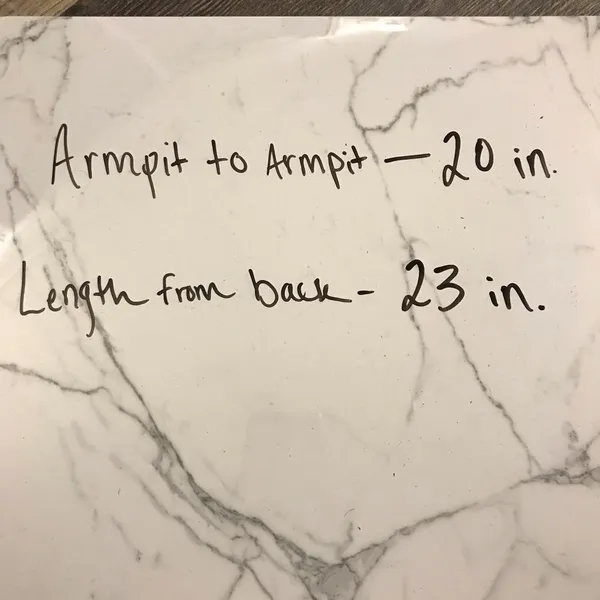 Armpit to Armpit - 20 in.
Length from back - 23 in.